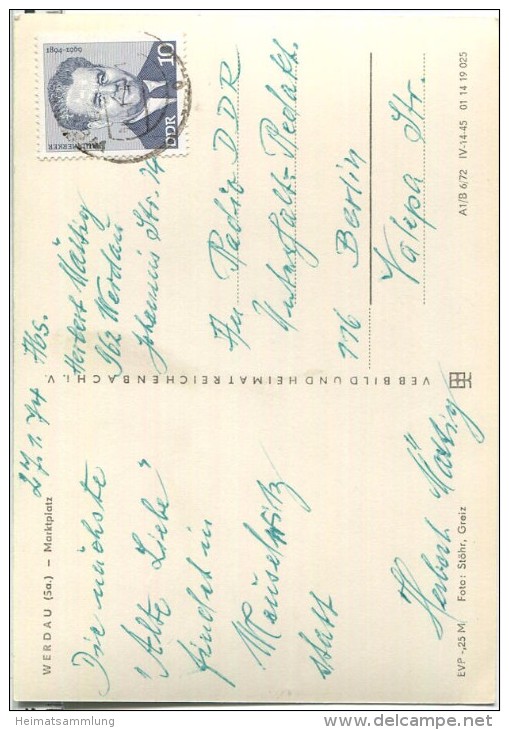 WERDAU (Sa.) – Marktplatz
27.1.74
Die nächste
"Alte Liebe"
findet in
Meuselwitz
statt
Herbert Mässig
EVP -,25 M Foto: Stöhr, Greiz
VEB BILD UND HEIMAT REICHENBACH I. V.
Herbert Mässig
962 Werdau
Johannis Str. 14
An Radio DDR
Unterhalt-Redakt.
116 Berlin
Str.
A1/B 6/72 IV-14-45 01 14 19 025
10
DDR
Heimatsammlung
www.delcampe.net